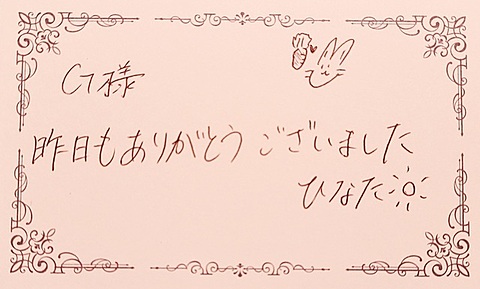 G様
昨日もありがとうございました
ひなた